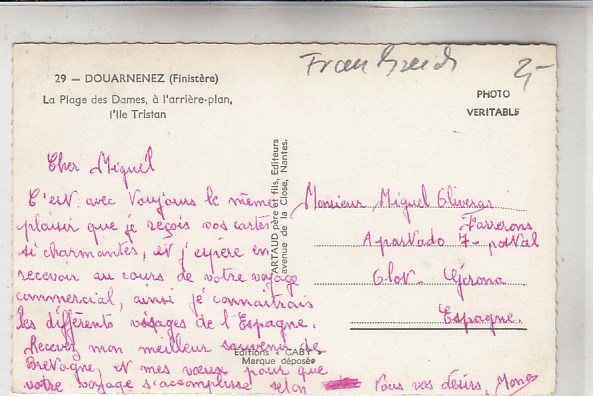 29 — DOUARNENEZ (Finistère)
La Plage des Dames, à l'arrière-plan,
l'Ile Tristan
2,-
PHOTO
VERITABLE
Cher Miguel
C'est avec toujours le même
plaisir que je reçois vos cartes
si charmantes, et j'espère en
recevoir au cours de votre voyage
commercial, ainsi je connaitrais
les différents visages de l'Espagne.
Recevez mon meilleur souvenir de
Bretagne, et mes vœux pour que
votre voyage s'accomplisse selon
tous vos désirs,
ARTAUD père et fils, Editeurs
avenue de la Close, Nantes.
Editions "GABY"
Marque déposée
Monsieur Miguel Oliveras
Farrerons
Apartado 7 - postal
Olot - Gerona
Espagne.